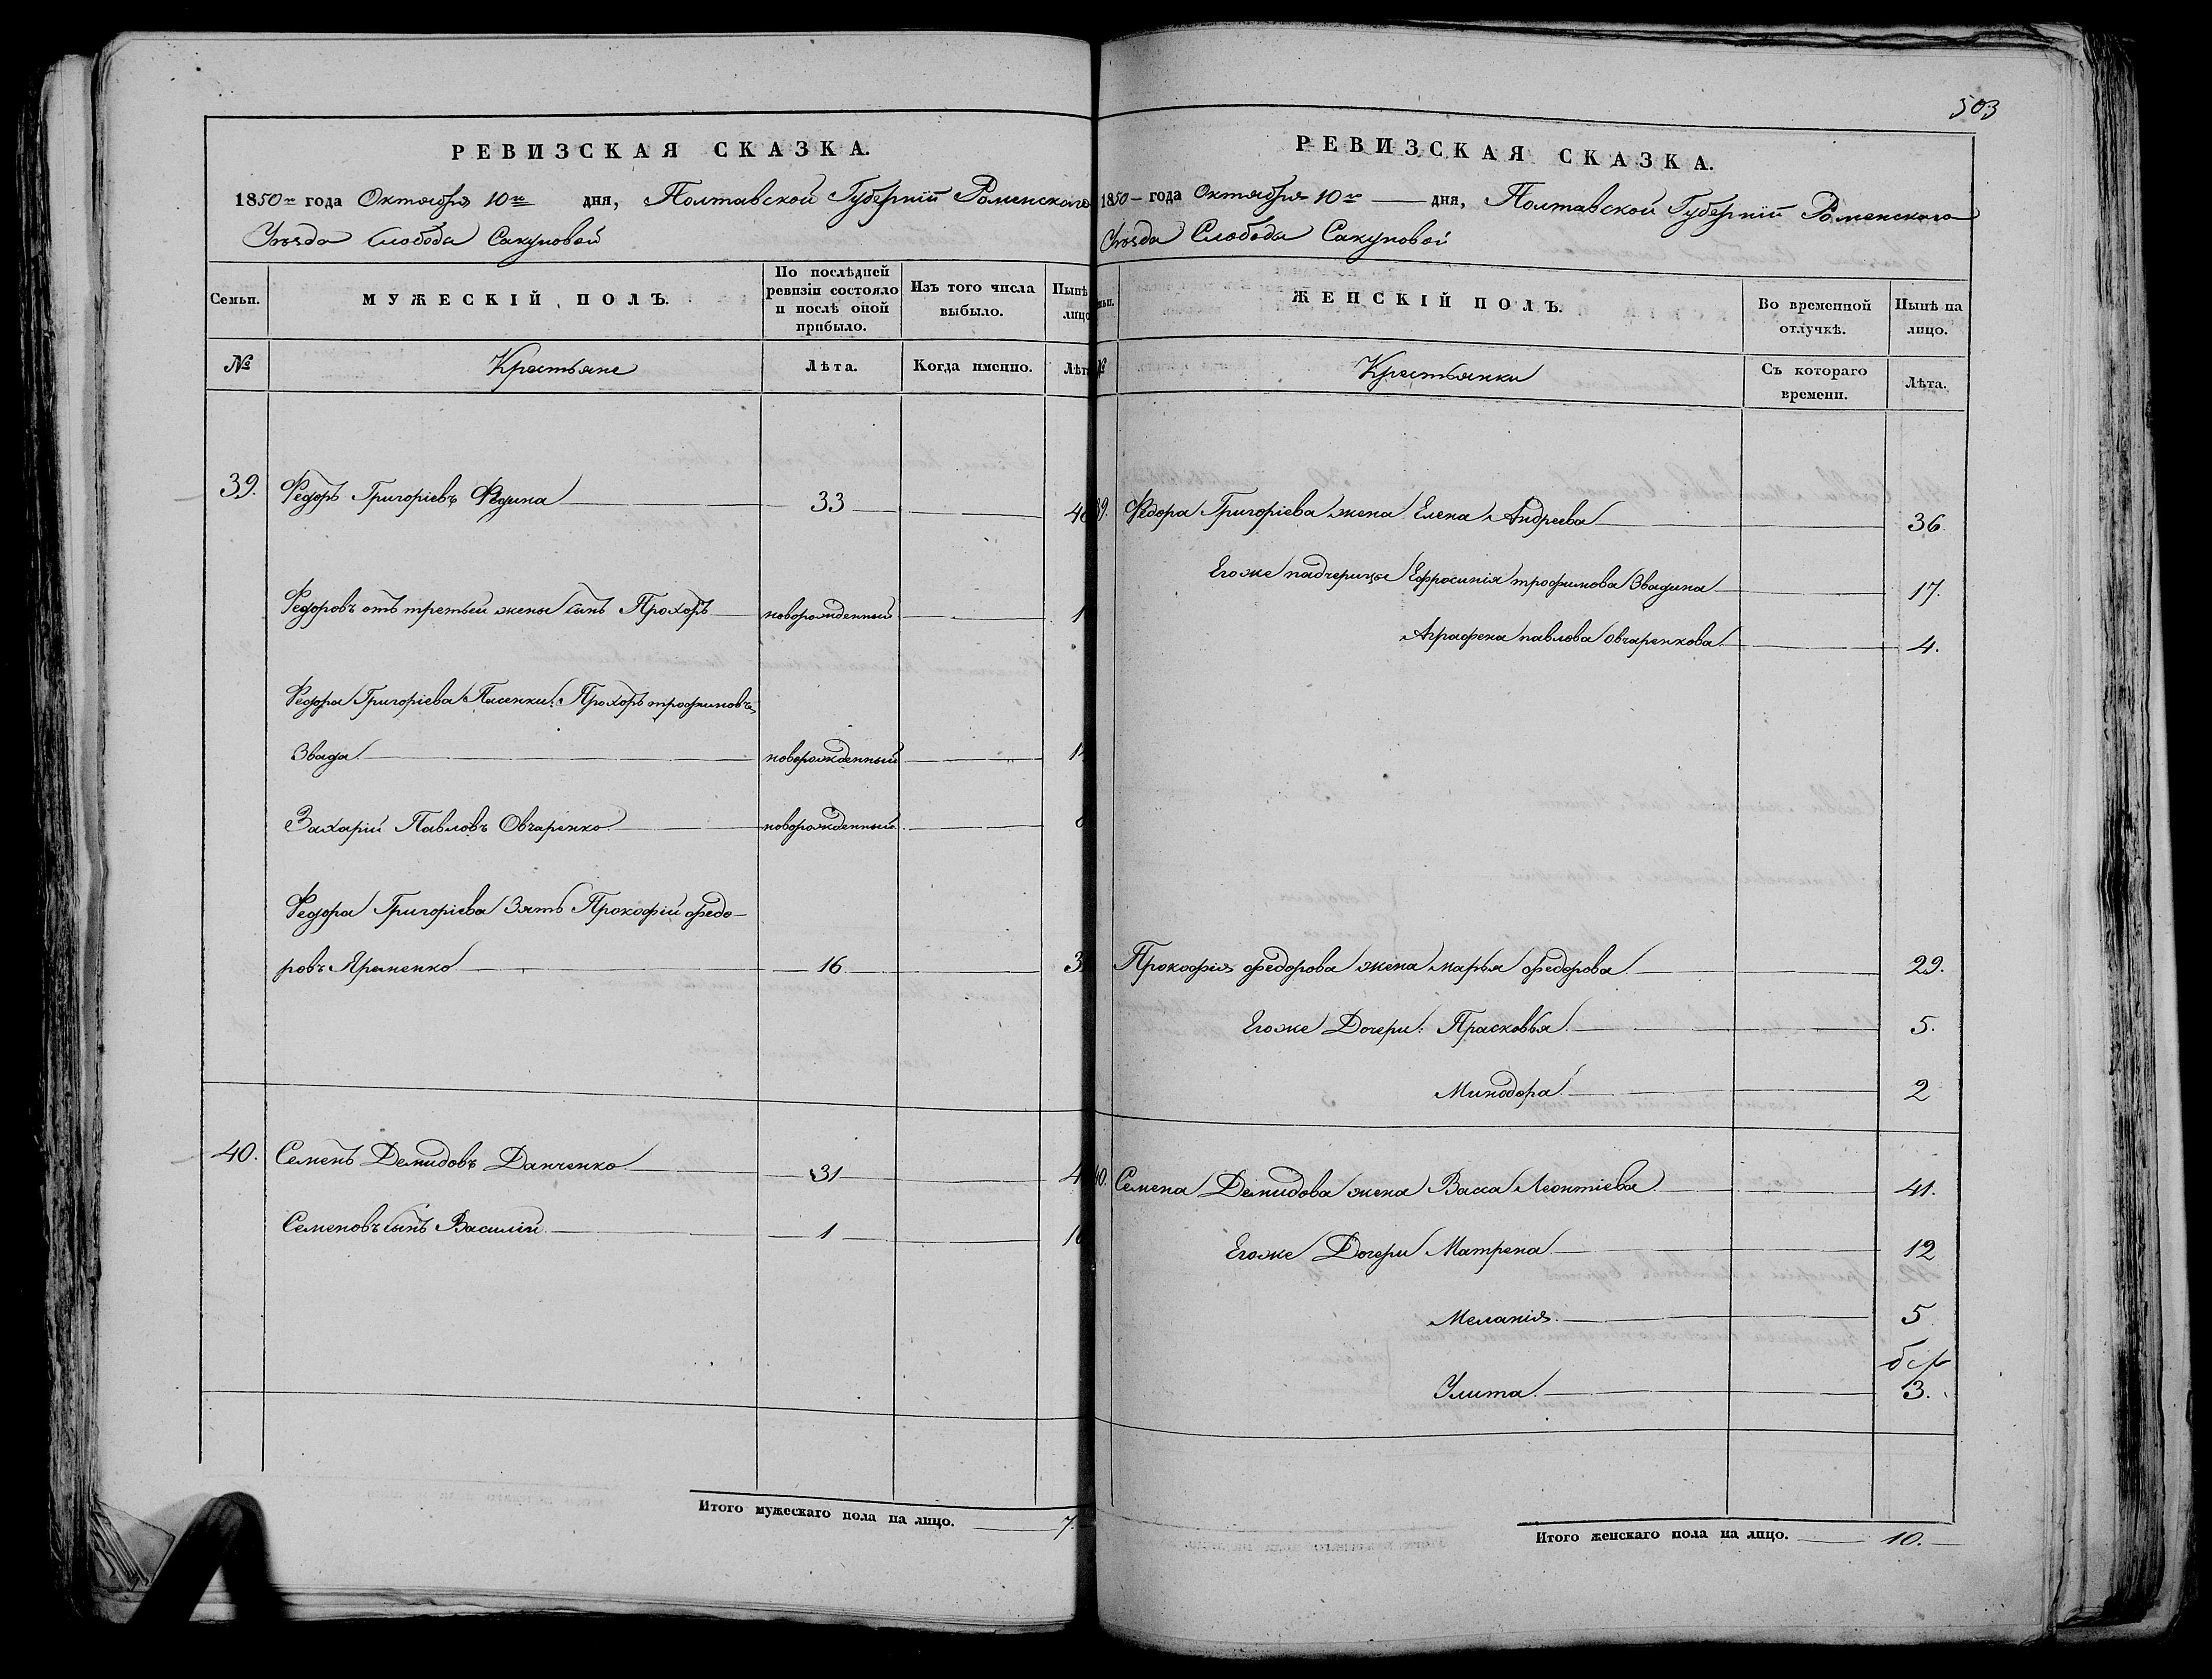 РЕВИЗСКАЯ СКАЗКА.
1850го года Октября 10го дня, Полтавской Губерніи Роменскаго
Уѣзда Слобода Сакуновой
Семьи.
МУЖЕСКІЙ ПОЛЪ.
По послѣдней ревизіи состояло и послѣ оной прибыло.
Изъ того числа выбыло.
Нынѣ
лицо
№
Крестьяне
Лѣта.
Когда именно.
Лѣта
39. Федоръ Григоріевъ Федина 33
Федоровъ отъ третьей жены сынъ Прохоръ новорожденный 1
Федора Григоріева Пасенки: Прохоръ трофимовъ
Звада новорожденный
Захарій Павловъ Овчаренко новорожденный
Федора Григоріева Зять Прокофій федо-
ровъ Яременко 16
40. Семенъ Демидовъ Данченко 31
Семеновъ сынъ Василій 1
Итого мужескаго пола на лицо. 7.
503
РЕВИЗСКАЯ СКАЗКА.
1850 года Октября 10го дня, Полтавской Губерніи Роменскаго
Уѣзда Слобода Сакуновой
ЖЕНСКІЙ ПОЛЪ.
Во временной отлучкѣ.
Нынѣ на лицо.
№
Крестьянки
Съ котораго времени.
Лѣта.
39. Федора Григоріева жена Елена Андреева 36
Егоже падчерицы Ефросинія трофимова Звадина 17.
Аграфена павлова Овчаренкова 4.
Прокофія федорова жена марья федорова 29.
Егоже Дочери: Прасковья 5.
Минодора 2
40. Семена Демидова жена Васса Леонтіева 41.
Егоже Дочери Матрена 12
Меланія 5
Улита 3.
Итого женскаго пола на лицо. 10.